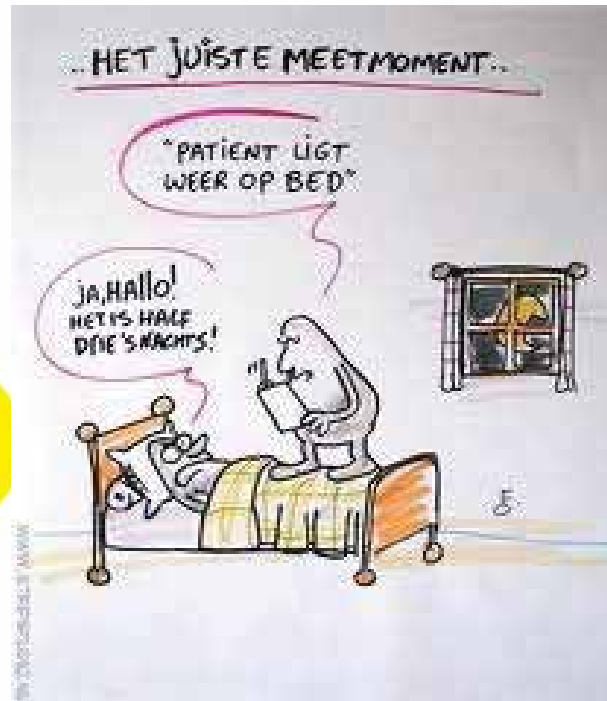 ..HET JUISTE MEETMOMENT..
"PATIENT LIGT
WEER OP BED"
JA, HALLO!
HET IS HALF
DRIE 'S NACHTS!